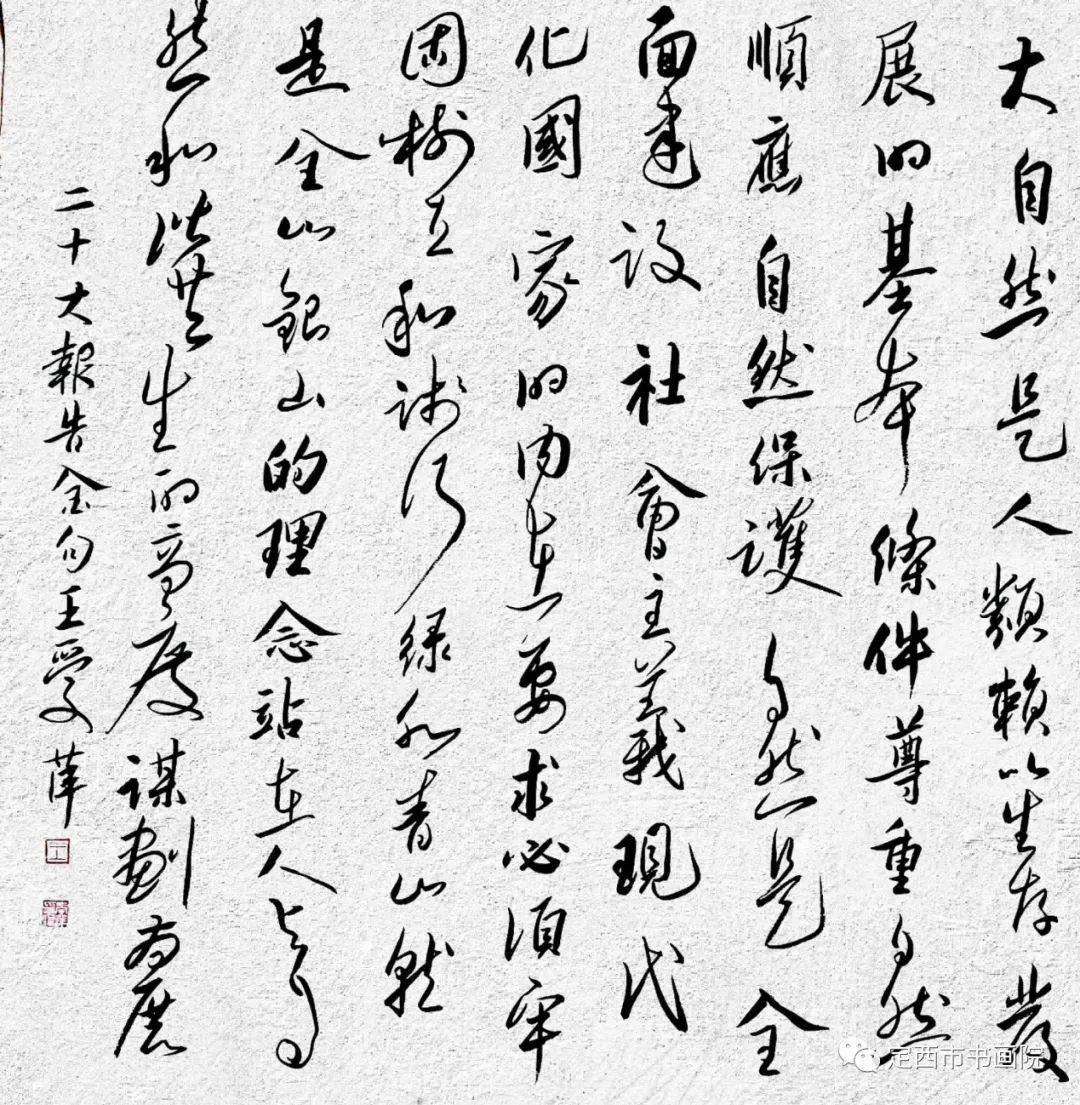 大自然是人類賴以生存發
展的基本條件尊重自然
順應自然保護自然是全
面建設社會主義現代
化國家的内在要求必須牢
固樹立和践行绿水青山就
是金山銀山的理念站在人与自
然和谐共生的高度謀劃发展
二十大報告金句王
定西市书画院